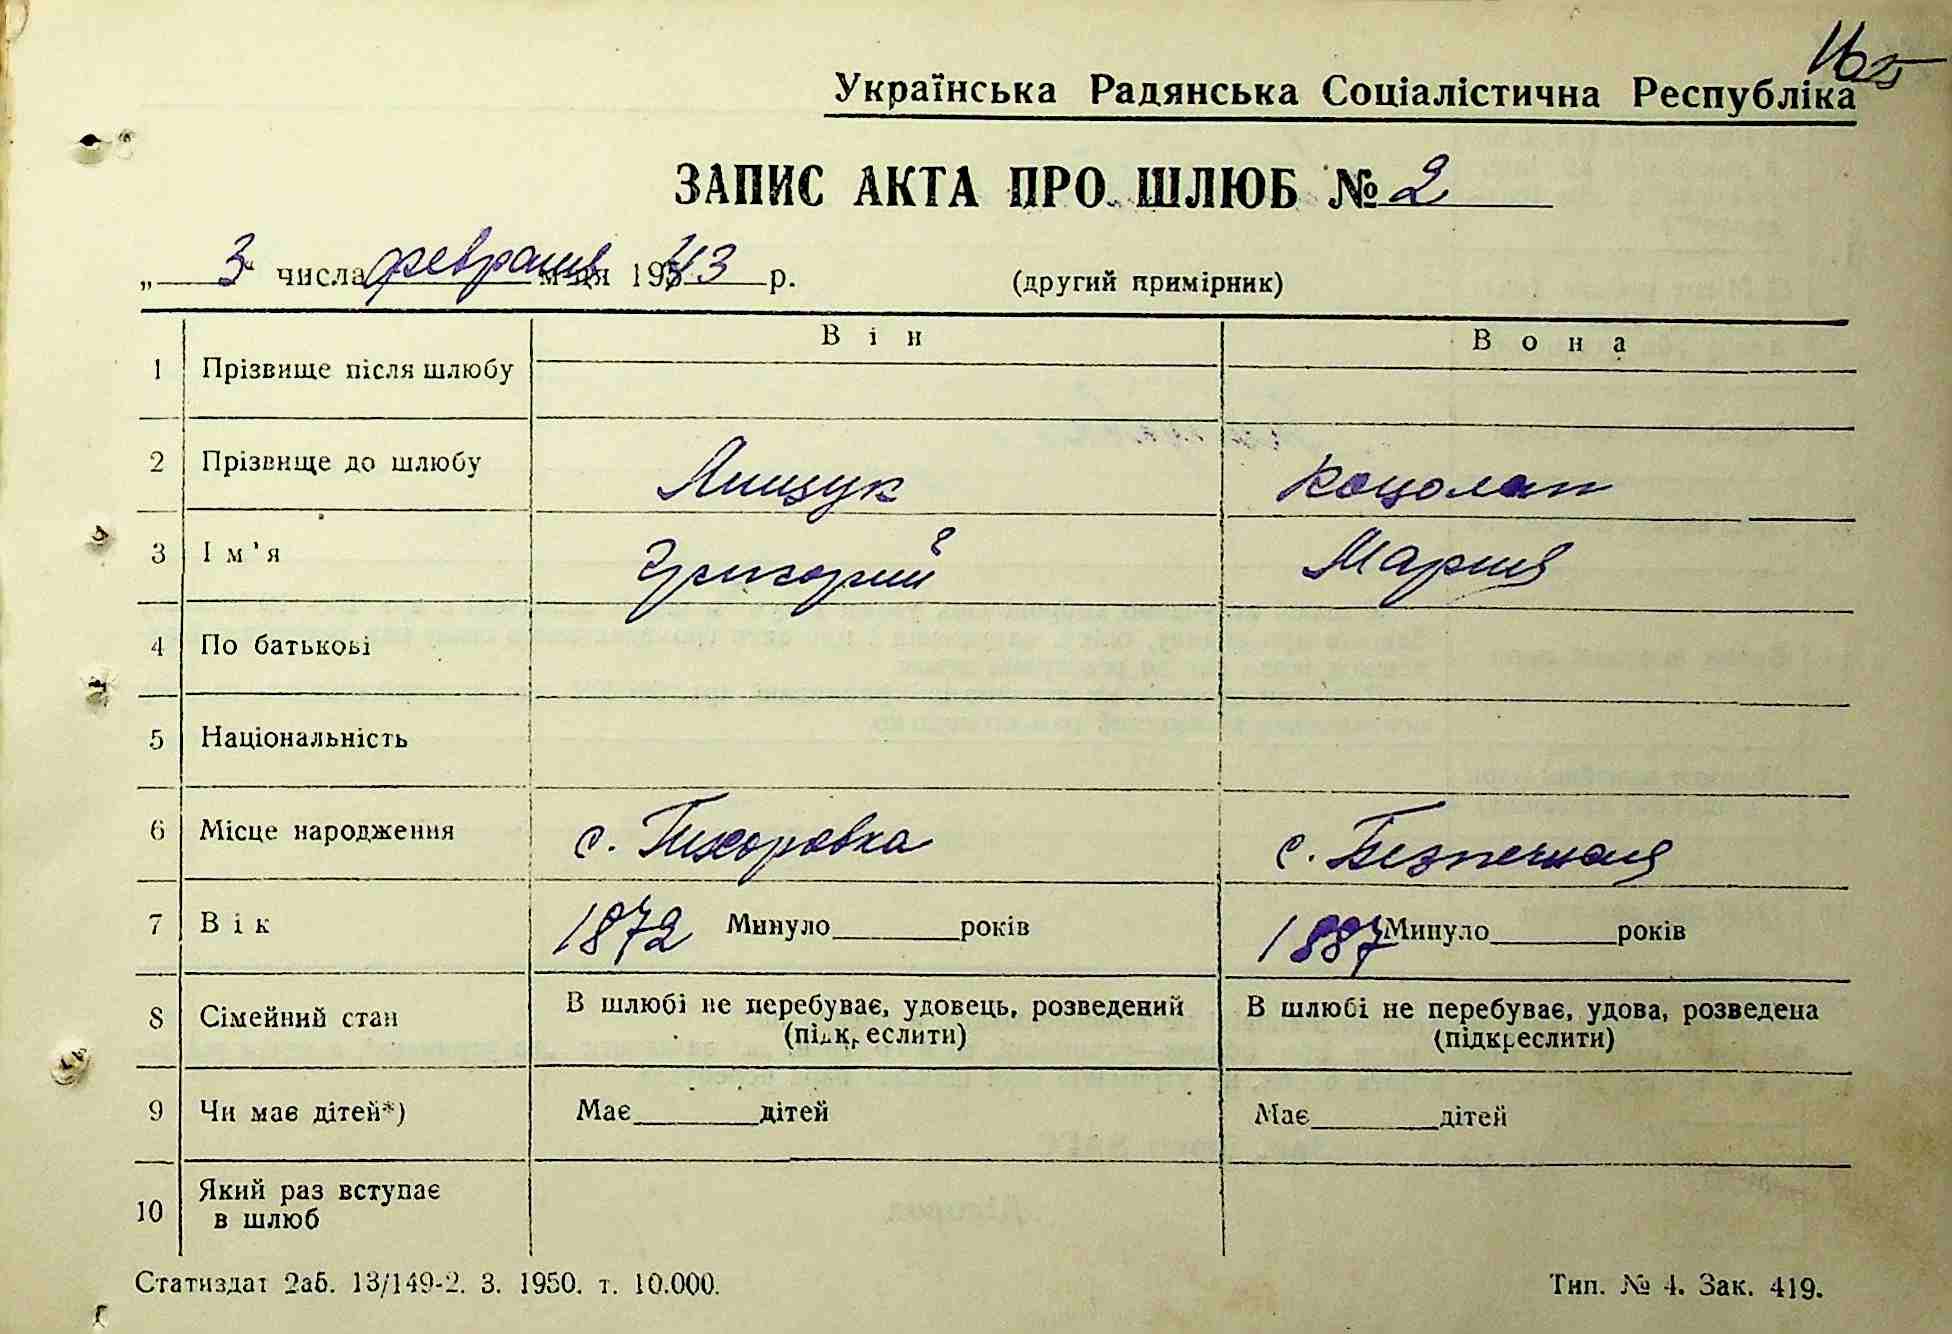 16
Українська Радянська Соціалістична Республіка
ЗАПИС АКТА ПРО ШЛЮБ № 2
„ 3 “ числа февраля м-ця 1943 р. (другий примірник)
Він Вона
1 Прізвище після шлюбу
2 Прізвище до шлюбу Ящук Коцолап
3 Ім'я Григорий Мария
4 По батькові
5 Національність
6 Місце народження с. Тихоровка с. Безпечная
7 Вік 1872 Минуло ____ років 1887 Минуло ____ років
8 Сімейний стан В шлюбі не перебуває, удовець, розведений (підкреслити) В шлюбі не перебуває, удова, розведена (підкреслити)
9 Чи має дітей*) Має ____ дітей Має ____ дітей
10 Який раз вступає
в шлюб
Статиздат 2аб. 13/149-2. 3. 1950. т. 10.000. Тип. № 4. Зак. 419.